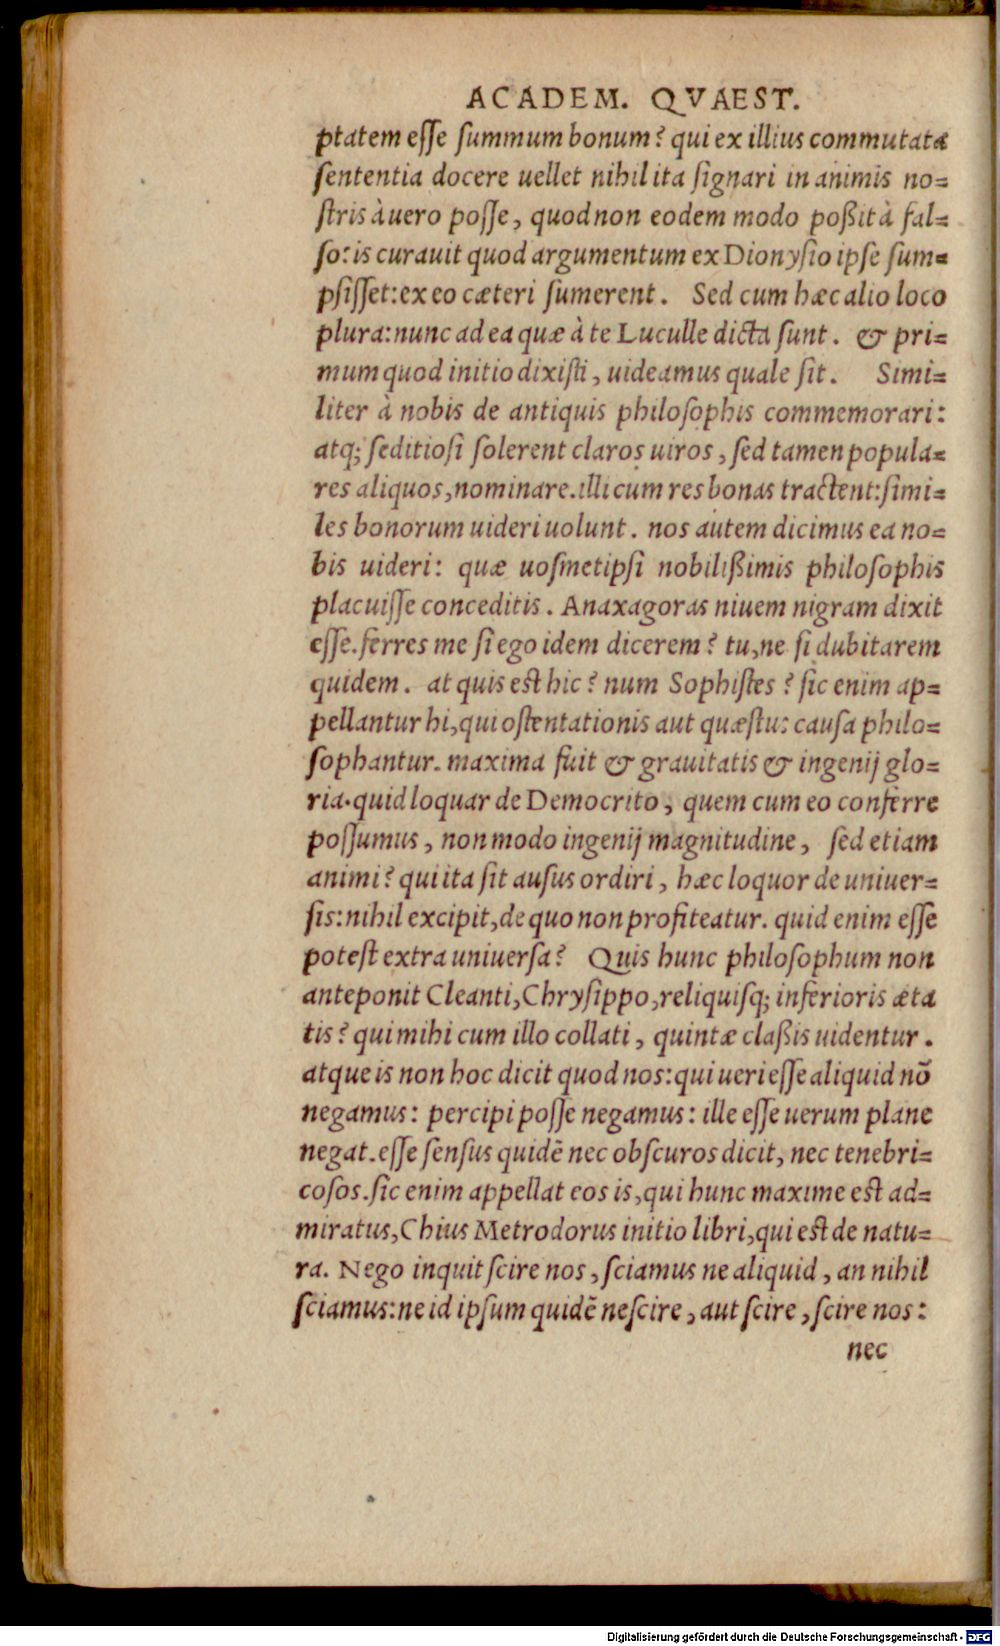 ACADEM. QVAEST.
ptatem esse summum bonum? qui ex illius commutata
sententia docere uellet nihil ita signari in animis no=
stris à uero posse, quod non eodem modo poßit à fal=
so: is curauit quod argumentum ex Dionysio ipse sum=
psisset: ex eo cæteri sumerent. Sed cum hæc alio loco
plura: nunc ad ea quæ à te Luculle dicta sunt. & pri=
mum quod initio dixisti, uideamus quale sit. Simi=
liter à nobis de antiquis philosophis commemorari:
atq; seditiosi solerent claros uiros, sed tamen popula=
res aliquos, nominare. illi cum res bonas tractent: simi=
les bonorum uideri uolunt. nos autem dicimus ea no=
bis uideri: quæ uosmetipsi nobilißimis philosophis
placuisse conceditis. Anaxagoras niuem nigram dixit
esse. ferres me si ego idem dicerem? tu, ne si dubitarem
quidem. at quis est hic? num Sophistes? sic enim ap=
pellantur hi, qui ostentationis aut quæstus causa philo=
sophantur. maxima fuit & grauitatis & ingenij glo=
ria. quid loquar de Democrito, quem cum eo conferre
possumus, non modo ingenij magnitudine, sed etiam
animi? qui ita sit ausus ordiri, hæc loquor de uniuer=
sis: nihil excipit, de quo non profiteatur. quid enim esse
potest extra uniuersa? Quis hunc philosophum non
anteponit Cleanti, Chrysippo, reliquisq; inferioris æta
tis? qui mihi cum illo collati, quintæ claßis uidentur.
atque is non hoc dicit quod nos: qui ueri esse aliquid nō
negamus: percipi posse negamus: ille esse uerum plane
negat. esse sensus quidē nec obscuros dicit, nec tenebri=
cosos. sic enim appellat eos is, qui hunc maxime est ad=
miratus, Chius Metrodorus initio libri, qui est de natu=
ra. Nego inquit scire nos, sciamus ne aliquid, an nihil
sciamus: ne id ipsum quidē nescire, aut scire, scire nos:
nec
Digitalisierung gefördert durch die Deutsche Forschungsgemeinschaft - DFG